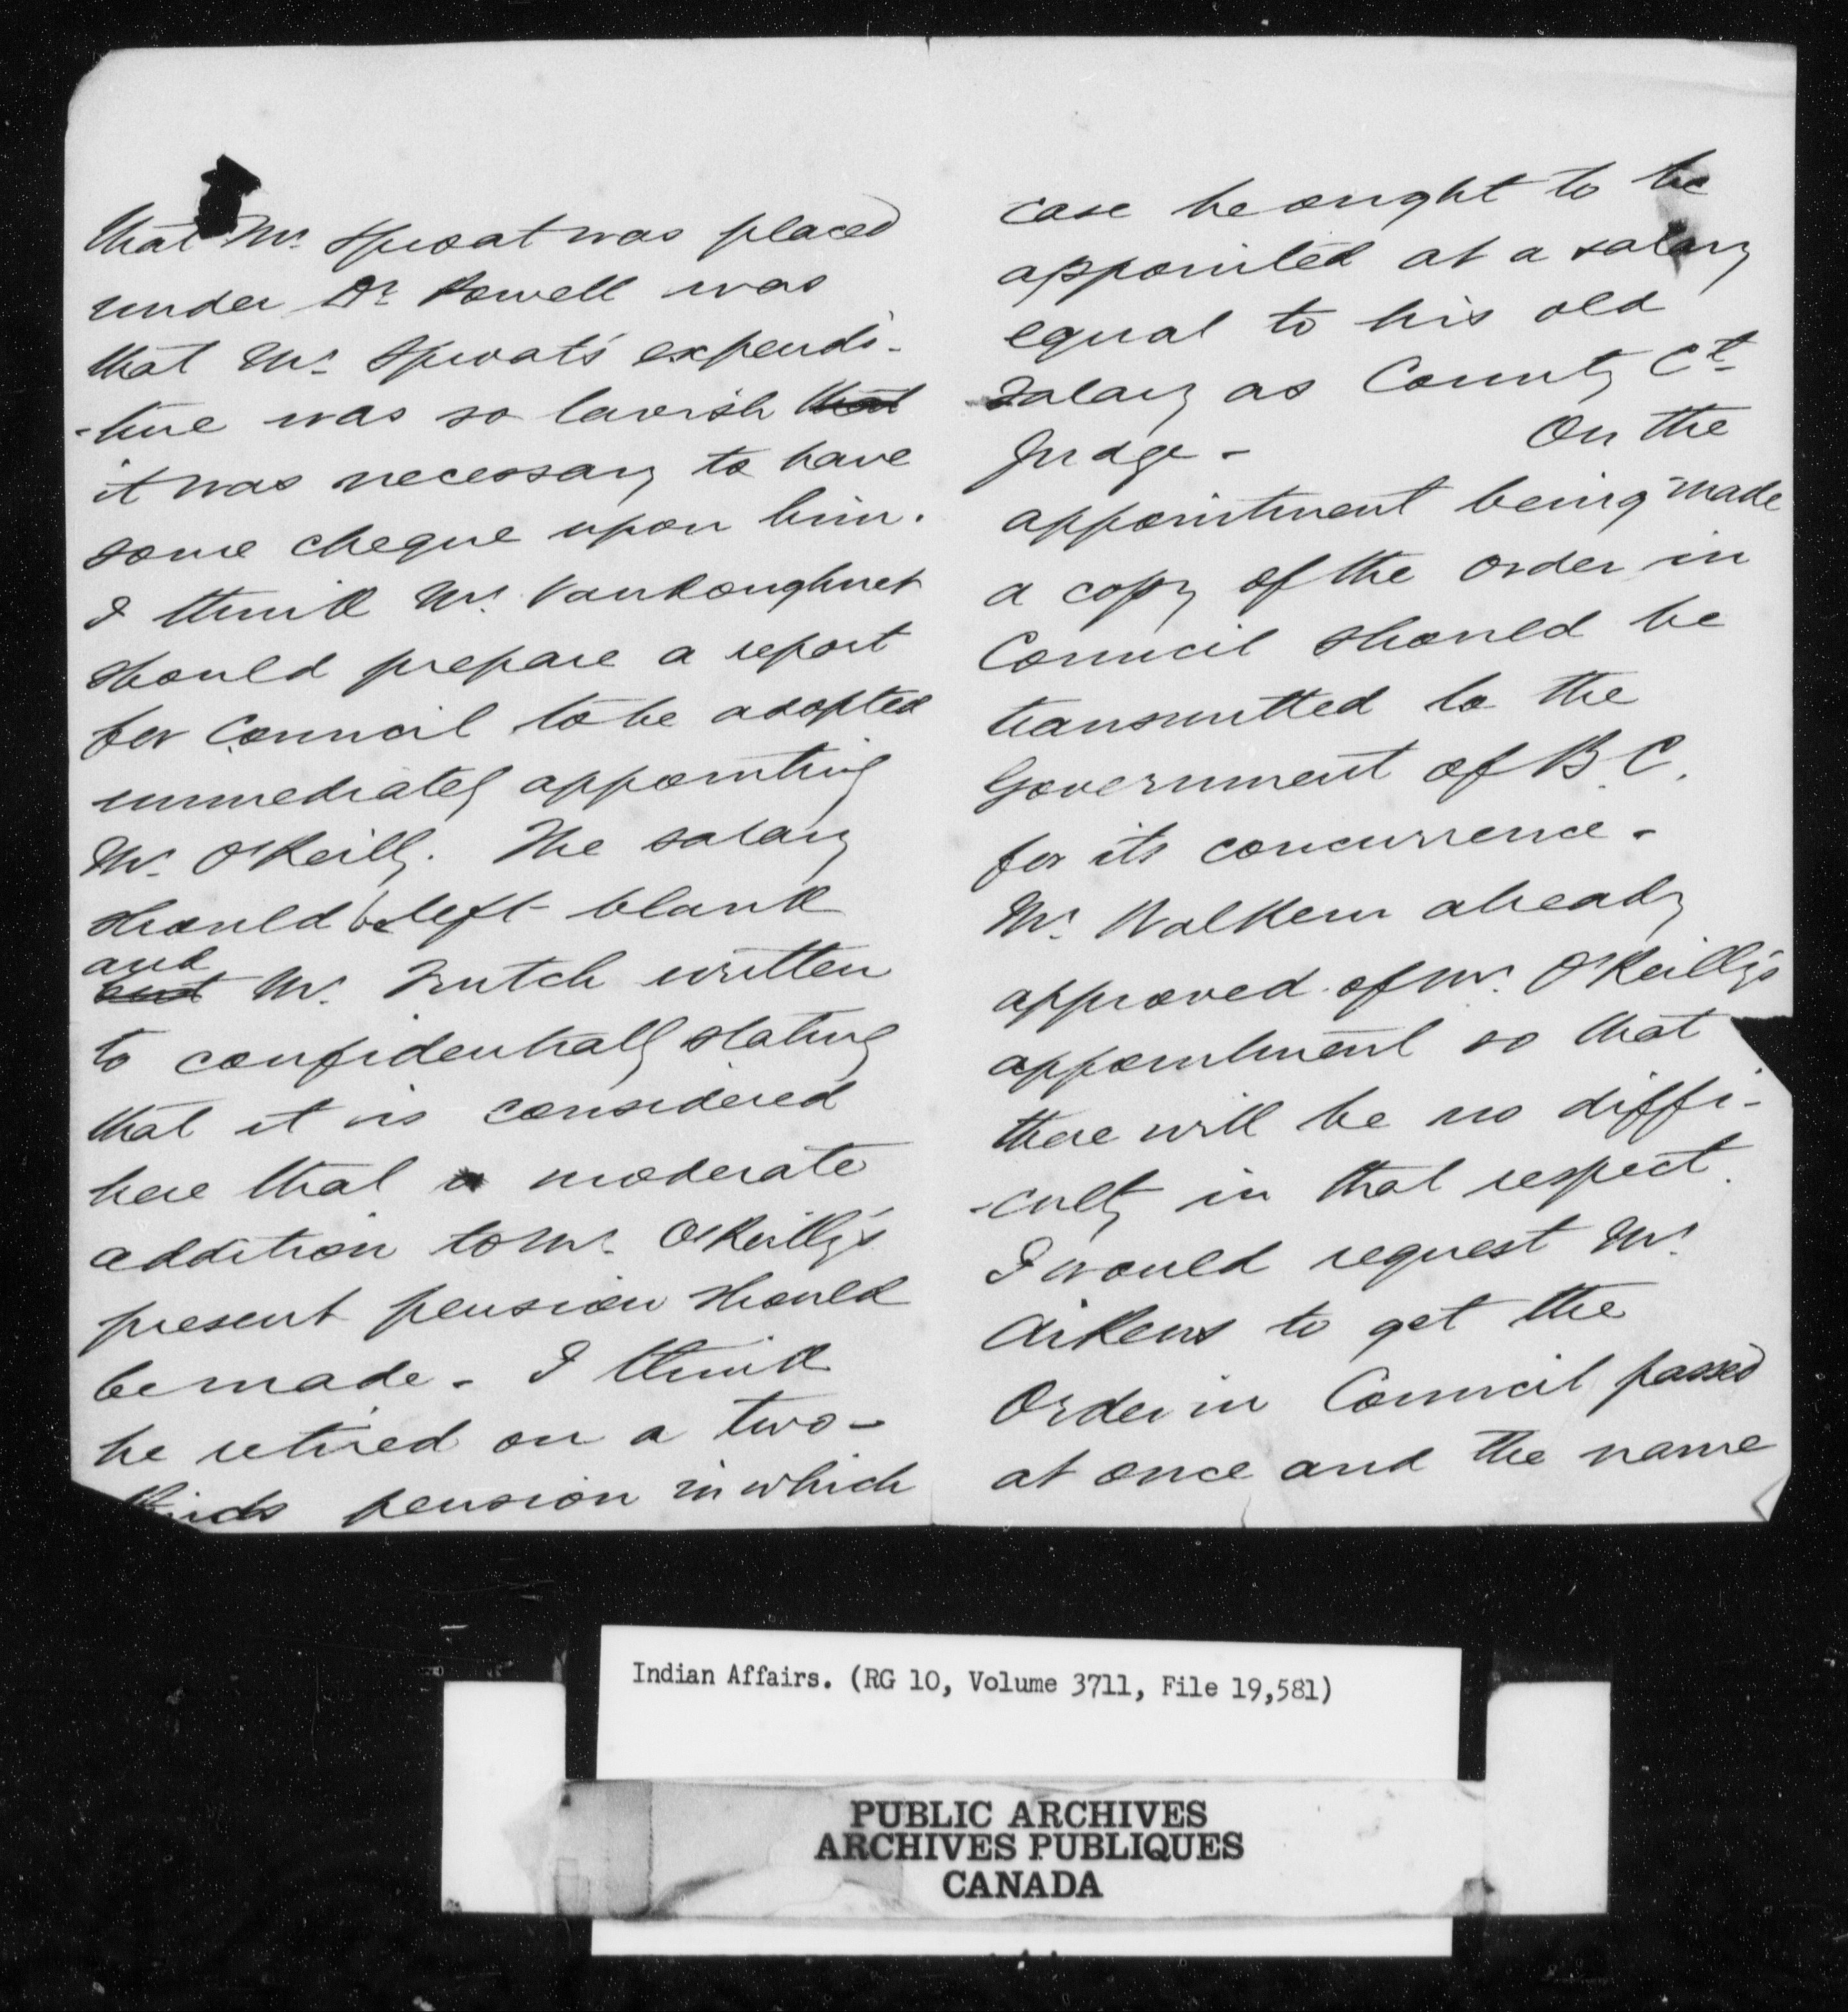 that Mr. Sproat was placed
under Dr. Powell was
that Mr. Sproat's expendi-
-ture was so lavish that
it was necessary to have
some cheque upon him.
I think Mr. VanKoughnet
should prepare a report
for Council to be adopted
immediately appointing
Mr. O'Reilly. The salary
should be left blank
and
but Mr. Trutch written
to confidentially stating
that it is considered
here that a moderate
addition to Mr. O'Reilly's
present pension should
be made - I think
he retired on a two-
thirds pension in which
case he ought to be
appointed at a salary
equal to his old
salary as County Ct.
Judge - On the
appointment being made
a copy of the order in
Council should be
transmitted to the
Government of B.C.
for its concurrence -
Mr. Walkem already
approved of Mr. O'Reilly's
appointment so that
there will be no diffi-
-culty in that respect.
I would request Mr.
Aikens to get the
Order in Council passed
at once and the name
Indian Affairs. (RG 10, Volume 3711, File 19,581)
PUBLIC ARCHIVES
ARCHIVES PUBLIQUES
CANADA